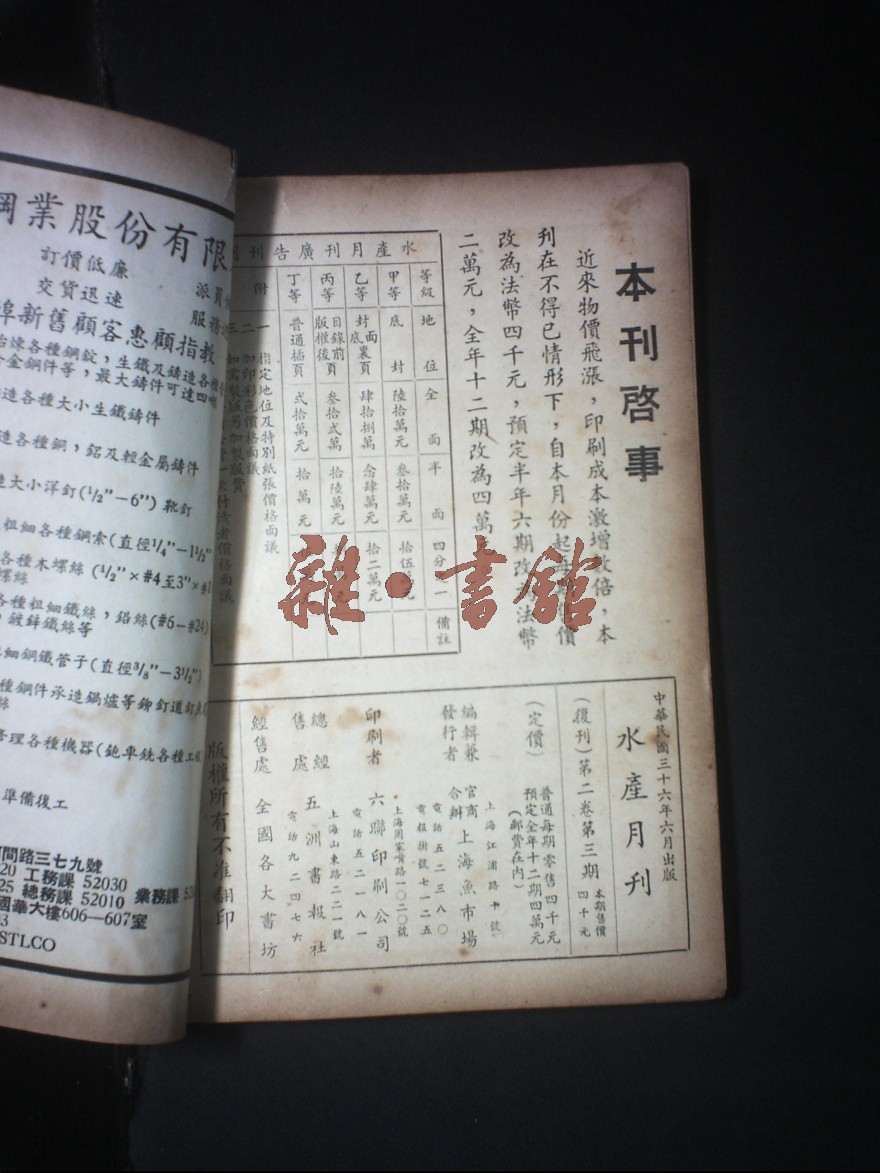 本刊啓事
近來物價飛漲，印刷成本激增數倍，本
刊在不得已情形下，自本月份起
改為法幣四千元，預定半年六期改
二萬元，全年十二期改為四萬
水產月刊廣告刊
等級 地位 全面 半面 四分一 備註
甲等 底封 陸拾萬元 叁拾萬元 拾伍
乙等 封面底裏頁 肆拾捌萬 念肆萬元 拾二萬元
丙等 目錄前頁版權後頁 叁拾貳萬 拾陸萬元
丁等 普通插頁 貳拾萬元 拾萬元
附
一 指定地位及特別紙張價格面議
二 加印彩色價格面議
三
中華民國三十六年六月出版
水產月刊
(復刊)第二卷第三期 本期售價四千元
(定價) 普通每期零售四千元
預定全年十二期四萬元
(郵費在內)
編輯兼發行者 官商合辦 上海魚市場
上海江浦路十號
電話五二三八〇
電報掛號七一二五
印刷者 六聯印刷公司
上海周家嘴路一〇二〇號
電話五二一八一
總經售處 五洲書報社
上海山東路二二一號
電話九二四七六
經售處 全國各大書坊
版權所有不准翻印
鋼業股份有限
訂價低廉
交貨迅速
派員
服務
埠新舊顧客惠顧指教
冶煉各種鋼錠，生鐵及鑄造各種
合金鋼件等，最大鑄件可達四噸
造各種大小生鐵鑄件
造各種銅，鋁及輕金屬鑄件
造大小洋釘(½"−6") 靴釘
粗細各種鋼索(直徑¼"−1½"
各種木螺絲 (½"×#4至3"×#1
螺絲
各種粗細鐵絲，鉛絲(#6−#24)
，鍍鋅鐵絲等
細鋼鐵管子(直徑⅜"−3½")
種鋼件承造鍋爐等鉚釘道釘
絲
修理各種機器(鉋車銑各種工
準備復工
間路三七九號
20 工務課 52030
25 總務課 52010 業務課
國華大樓606—607室
STLCO
雜·書館